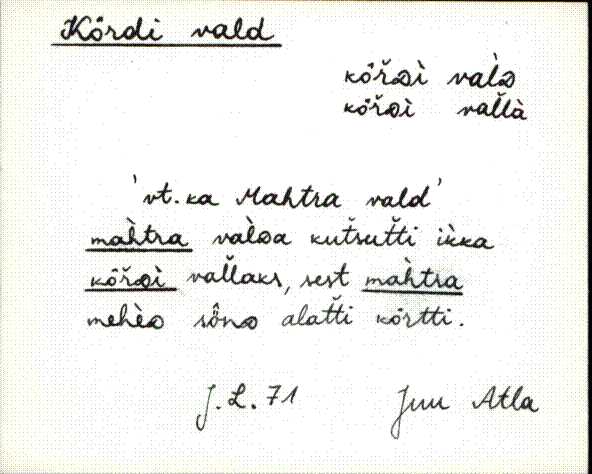 Kõrdi vald
kõ̆řᴅì val̀ᴅ
kõ̆řᴅì val̆là
'vt. ka Mahtra vald'
mah̀tra val̀ᴅa kut̆sut̆ti ìkka
kõ̆řᴅì val̆laks, sest mah̀tra
mehèᴅ sõ̂nᴅ alat̆ti kõrtti.
J. L. 71 Juu Atla